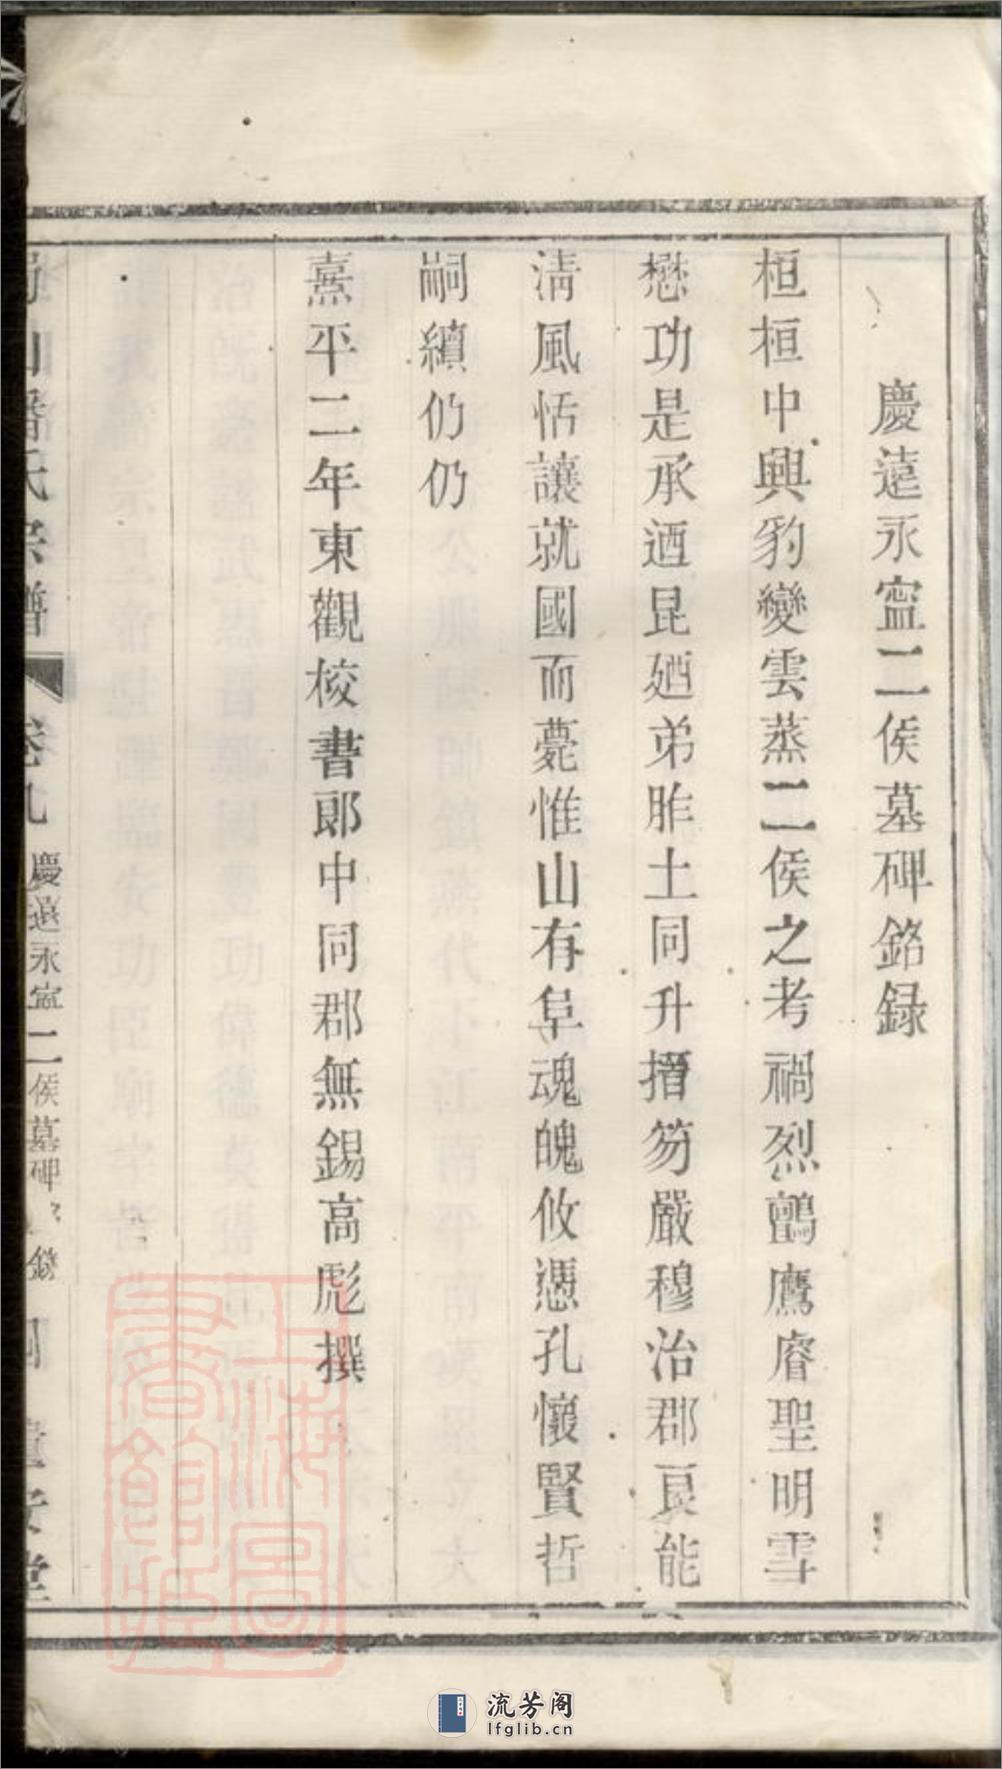 慶遠永寍二侯墓碑銘録
桓桓中興豹變雲蒸二侯之考禍烈鸇鷹睿聖明雪
懋功是承迺昆廼弟胙土同升搢笏嚴穆治郡良能
淸風恬讓就國而薨惟山有阜魂魄攸憑孔懷賢哲
嗣續仍仍
熹平二年東觀校書郎中同郡無錫高彪撰
山潘氏宗譜 卷九 慶遠永寍二侯墓碑 錄
上海圖書館藏
流芳阁
lfglib.cn